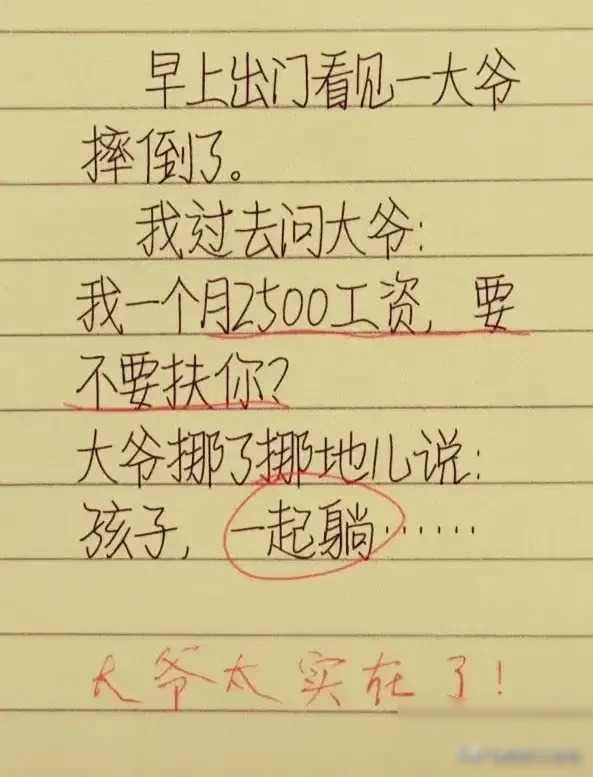 早上出门看见一大爷
摔倒了。
我过去问大爷：
我一个月2500工资，要
不要扶你？
大爷挪了挪地儿说：
孩子，一起躺……
大爷太实在了！